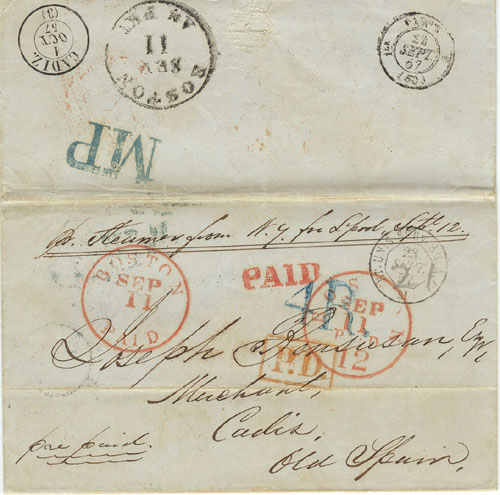 CADIZ
1
OCT
57
(3)
BOSTON
AM PKT
SEP
11
PARIS
SEPT.
57
(60)
MP
pr. Steamer from N.Y. for Lpool, Septr. 12.
BOSTON
SEP
11
PAID
PAID
4R.
SEP
11
PAID
12
P.D.
Joseph Esqr.,
Merchant,
Cadiz,
Old Spain,
pre paid.